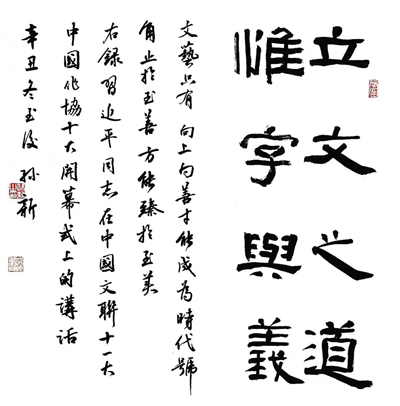 立文之道
惟字與義
文藝只有向上向善才能成為時代號
角止於至善方能臻於至美
右錄習近平同志在中國文聯十一大
中國作協十大開幕式上的講話
辛丑冬至後孫新